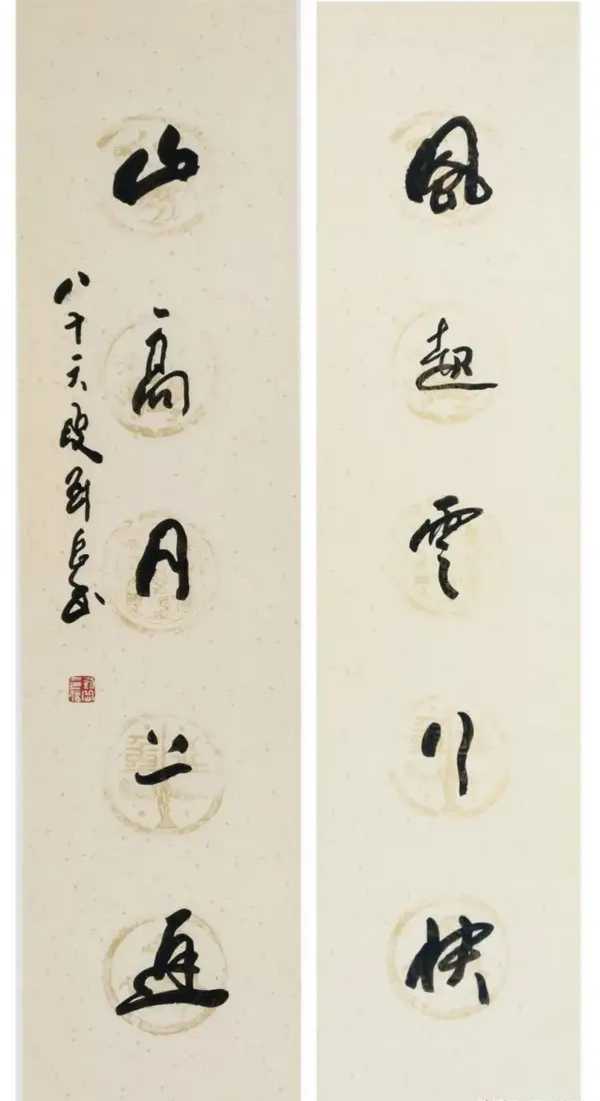 風起雲行快
山高月上遲
八十六叟